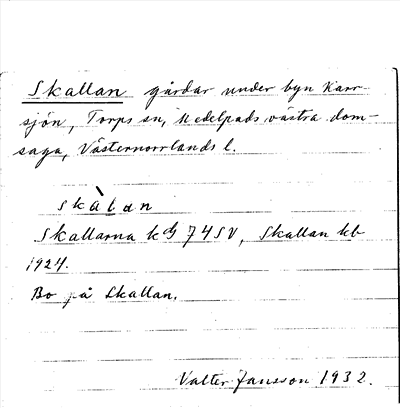 Skallan gårdar under byn Karr-
sjön, Torps sn, Medelpads västra dom-
saga, Västernorrlands l.
skàlan
Skallarna kdg 74SV, Skallan kb
1924.
Bo på Skallan.
Valter Jansson 1932.